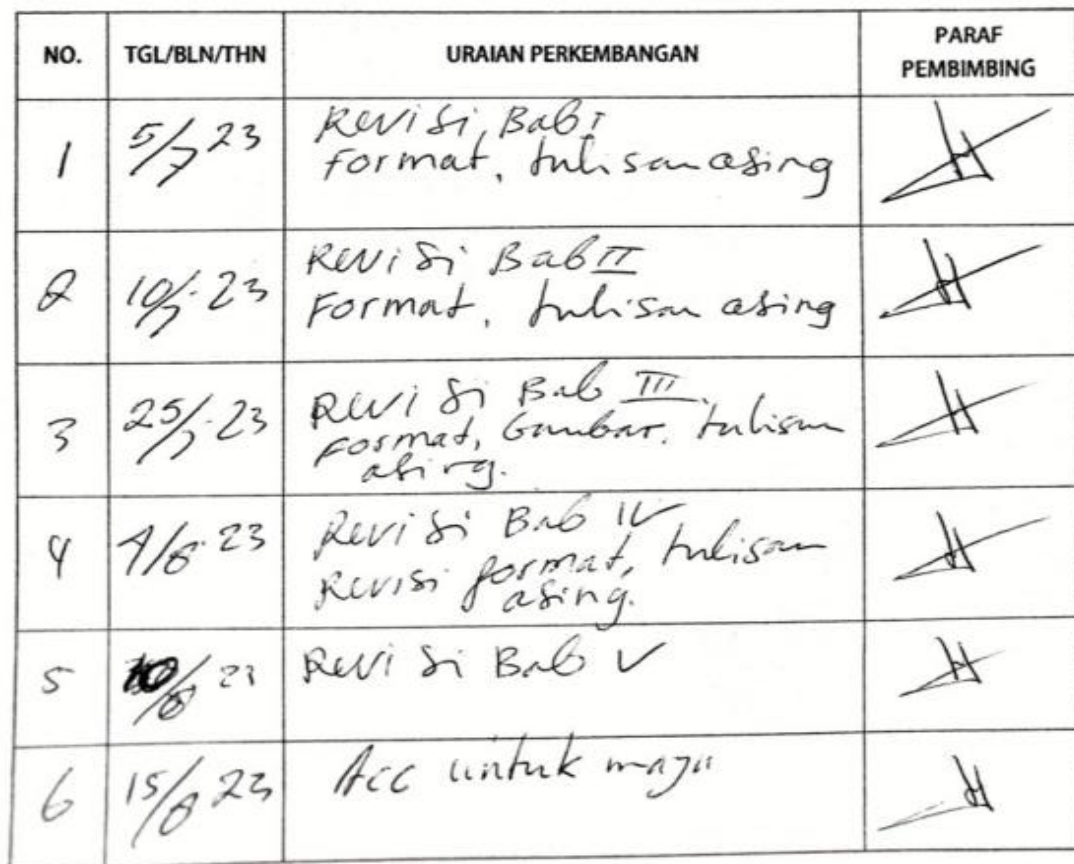 NO. TGL/BLN/THN URAIAN PERKEMBANGAN PARAF PEMBIMBING
1 5/7 23 Revisi, Bab I
Format, tulisan asing
2 10/7 23 Revisi Bab II
Format, tulisan asing
3 25/7 23 Revisi Bab III
Format, Gambar, tulisan
asing.
4 4/8 23 Revisi Bab IV
Revisi format, tulisan
asing.
5 10/8 23 Revisi Bab V
6 15/8 23 Acc untuk maju